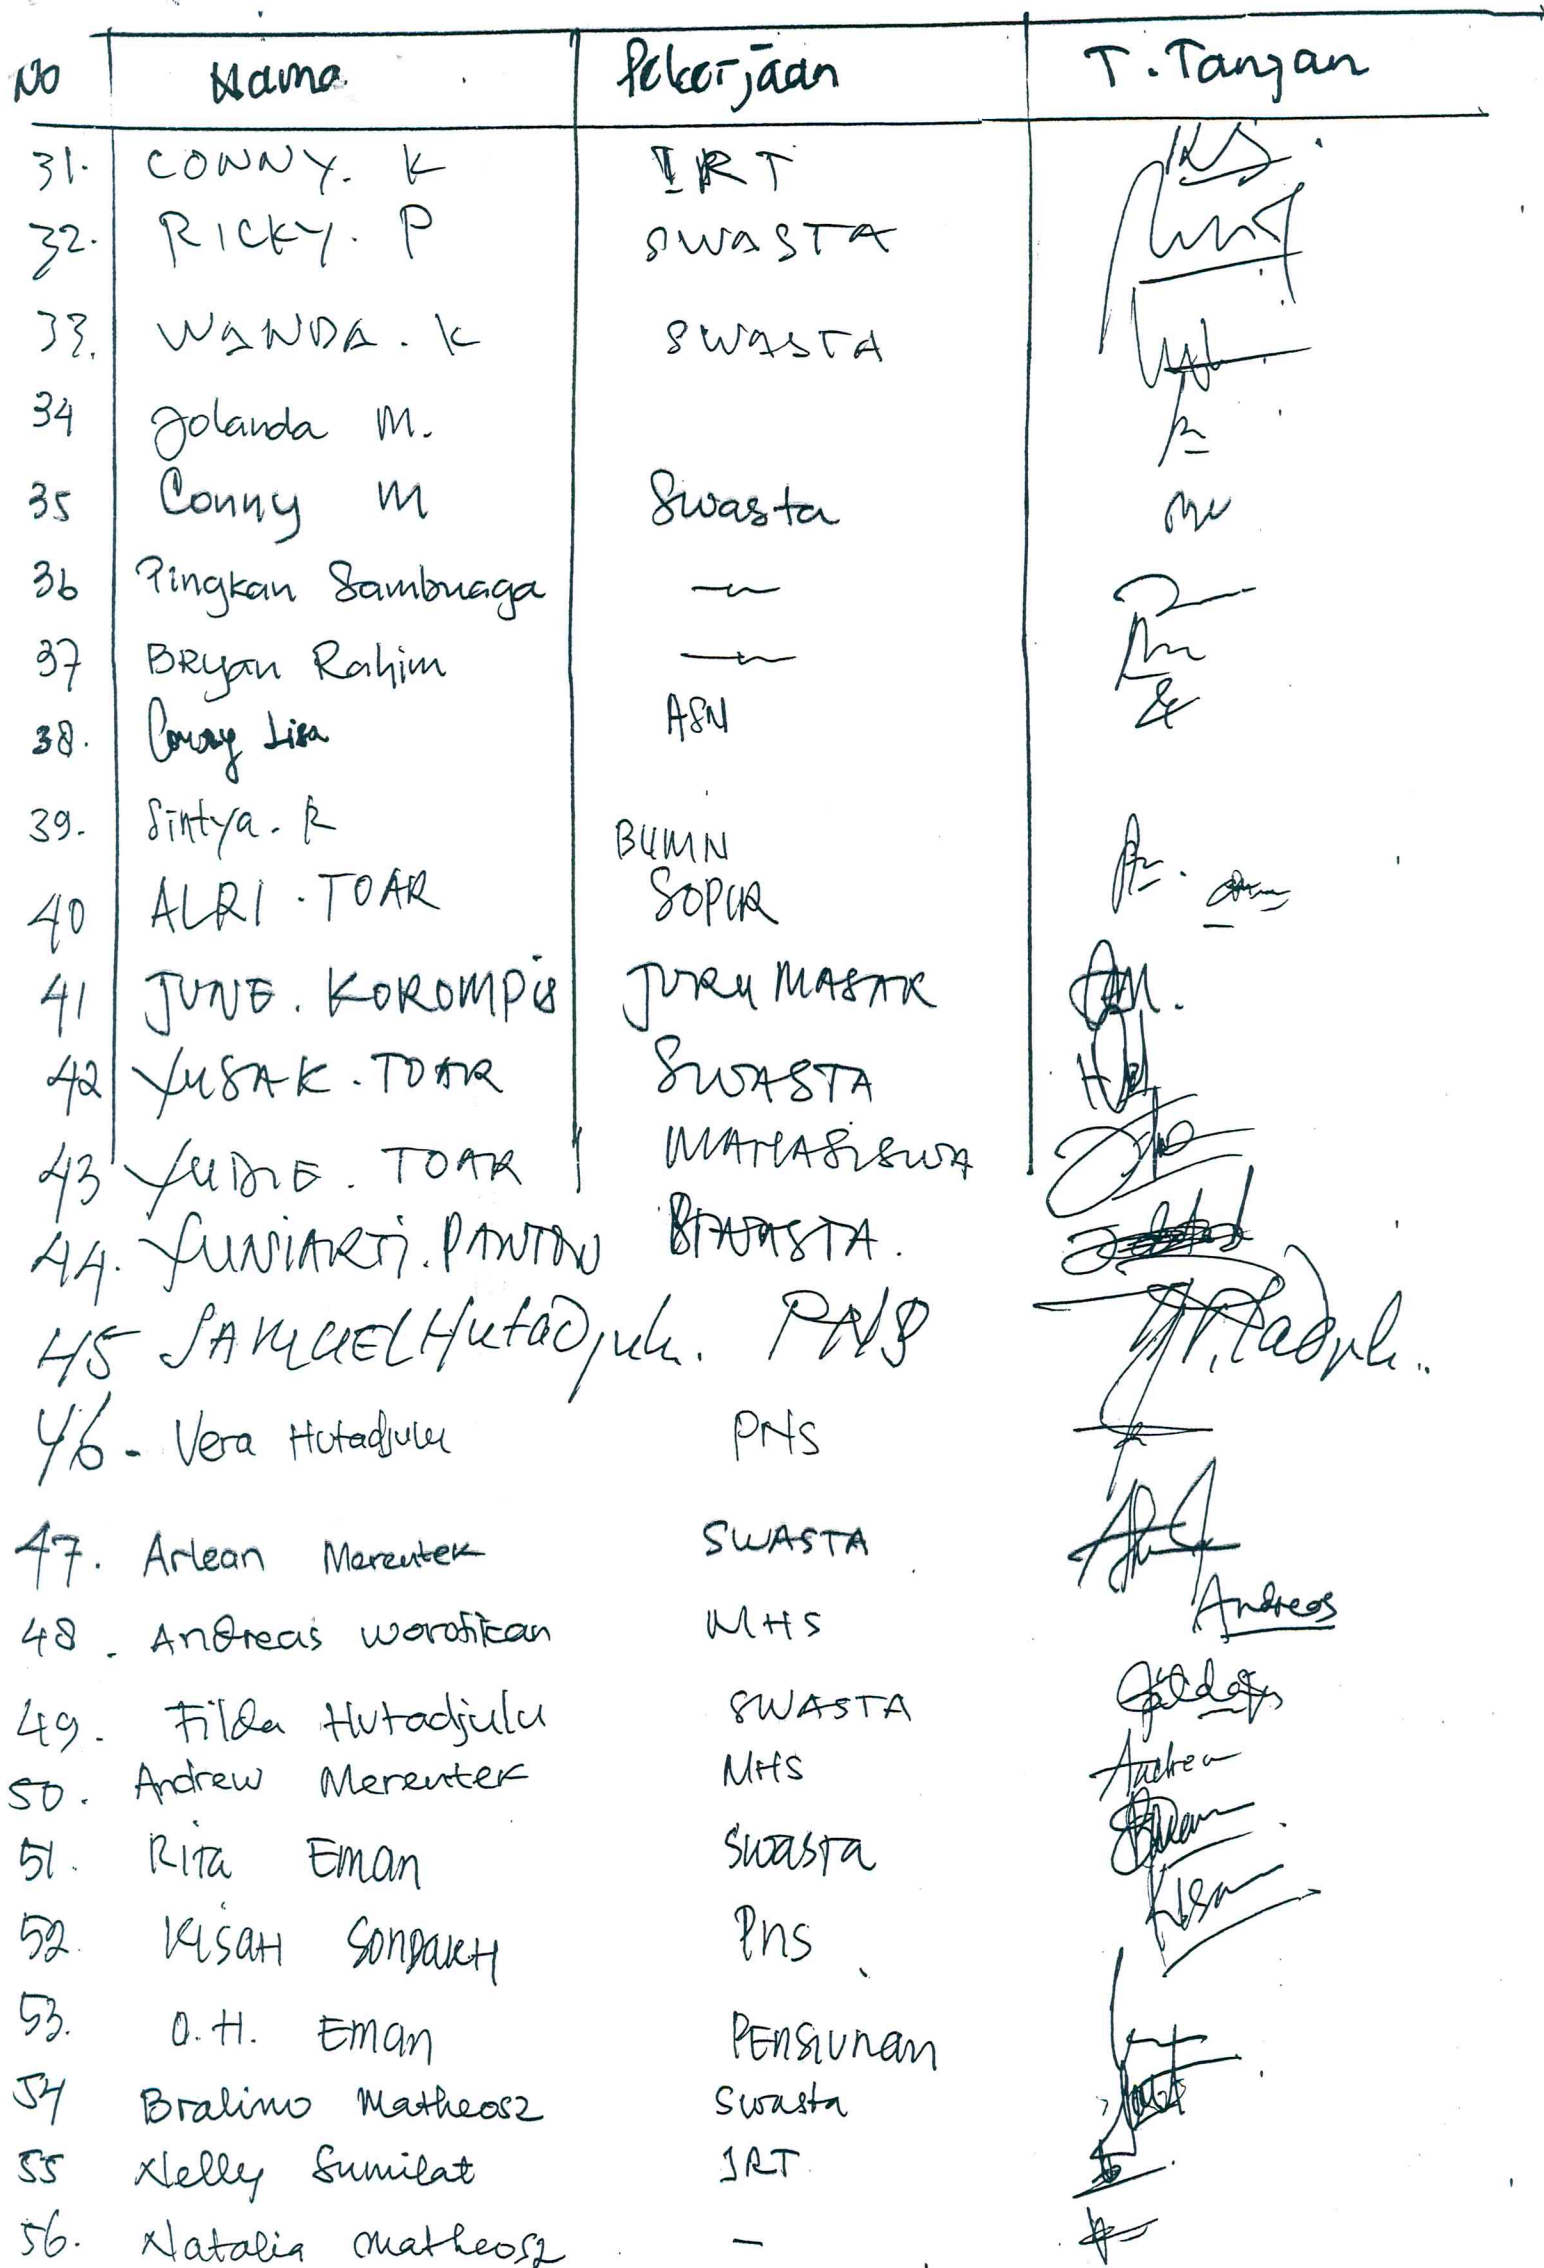 No Nama Pekerjaan T. Tangan
31. CONNY. K IRT
32. RICKY. P SWASTA
33. WANDA. K SWASTA
34 Jolanda M.
35 Conny M Swasta
36 Pingkan Sambuaga
37 Bryan Rahim
38. Conny Lisa ASN
39. Sintya. R BUMN
40 ALRI. TOAR SOPIR
41 JUNE. KOROMPIS JURU MASAK
42 YUSAK. TOAR SWASTA
43 YUDIE. TOAR MAHASISWA
44. YUNIARTI. PANTOW
45 SAMUEL Hutadjulu. PNS
46 - Vera Hutadjulu PNS
47. Arlean Merentek SWASTA
48. Andreas Worotikan MHS Andreas
49. Filda Hutadjulu SWASTA
50. Andrew Merentek MHS Andrew
51. Rita Eman Swasta
52. KISAH SONDAKH Pns
53. O.H. Eman PENSIUNAN
54 Bralino Matheosz Swasta
55 Nelly Sumilat IRT
56. Natalia Matheosz -